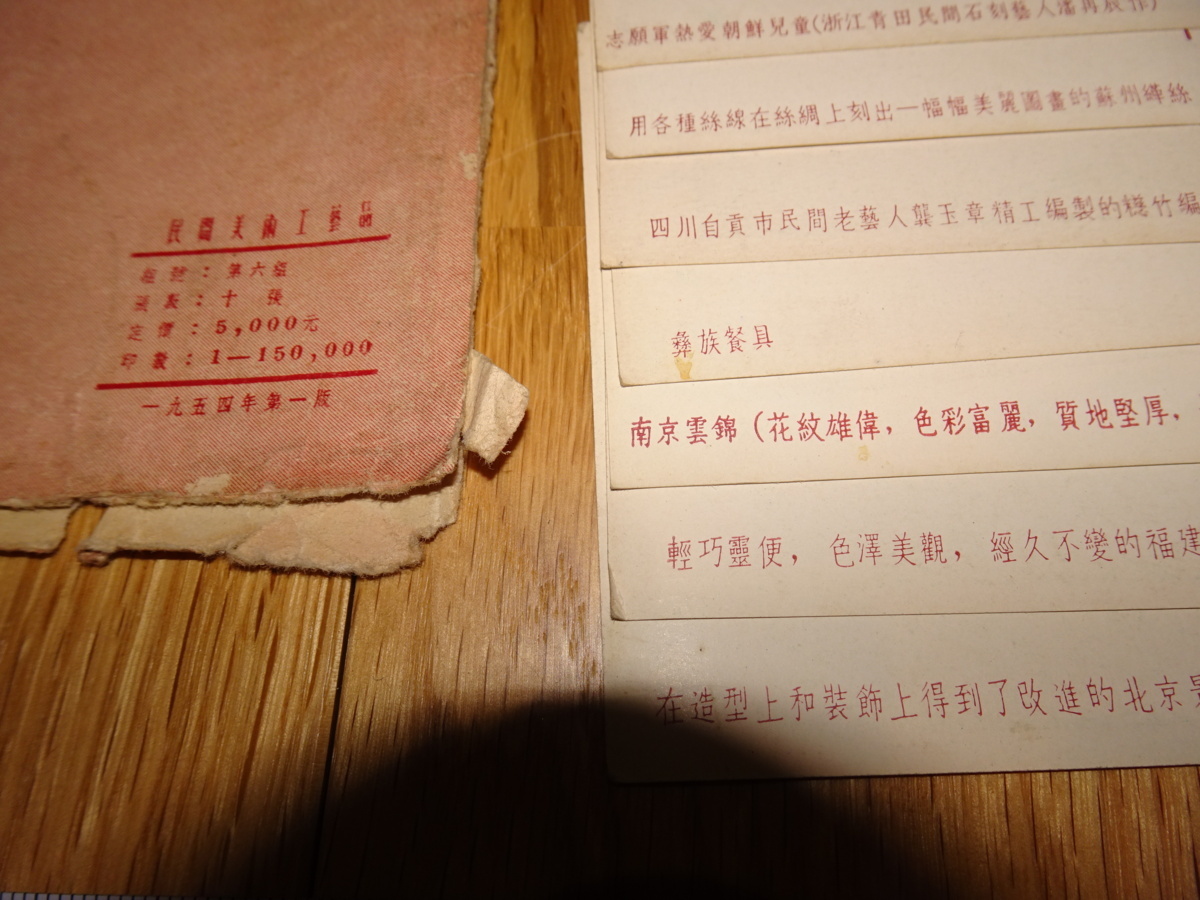 民間美術工藝
組號：第六組
張數：十 張
定價：5,000元
印數：1—150,000
一九五四年第一版
志願軍熱愛朝鮮兒童(浙江青田民間石刻藝人潘再辰作)
用各種絲線在絲綢上刻出一幅幅美麗圖畫的蘇州緙絲
四川自貢市民間老藝人龔玉章精工編製的竹編
彝族餐具
南京雲錦（花紋雄偉，色彩富麗，質地堅厚，
輕巧靈便，色澤美觀，經久不變的福建
在造型上和裝飾上得到了改進的北京